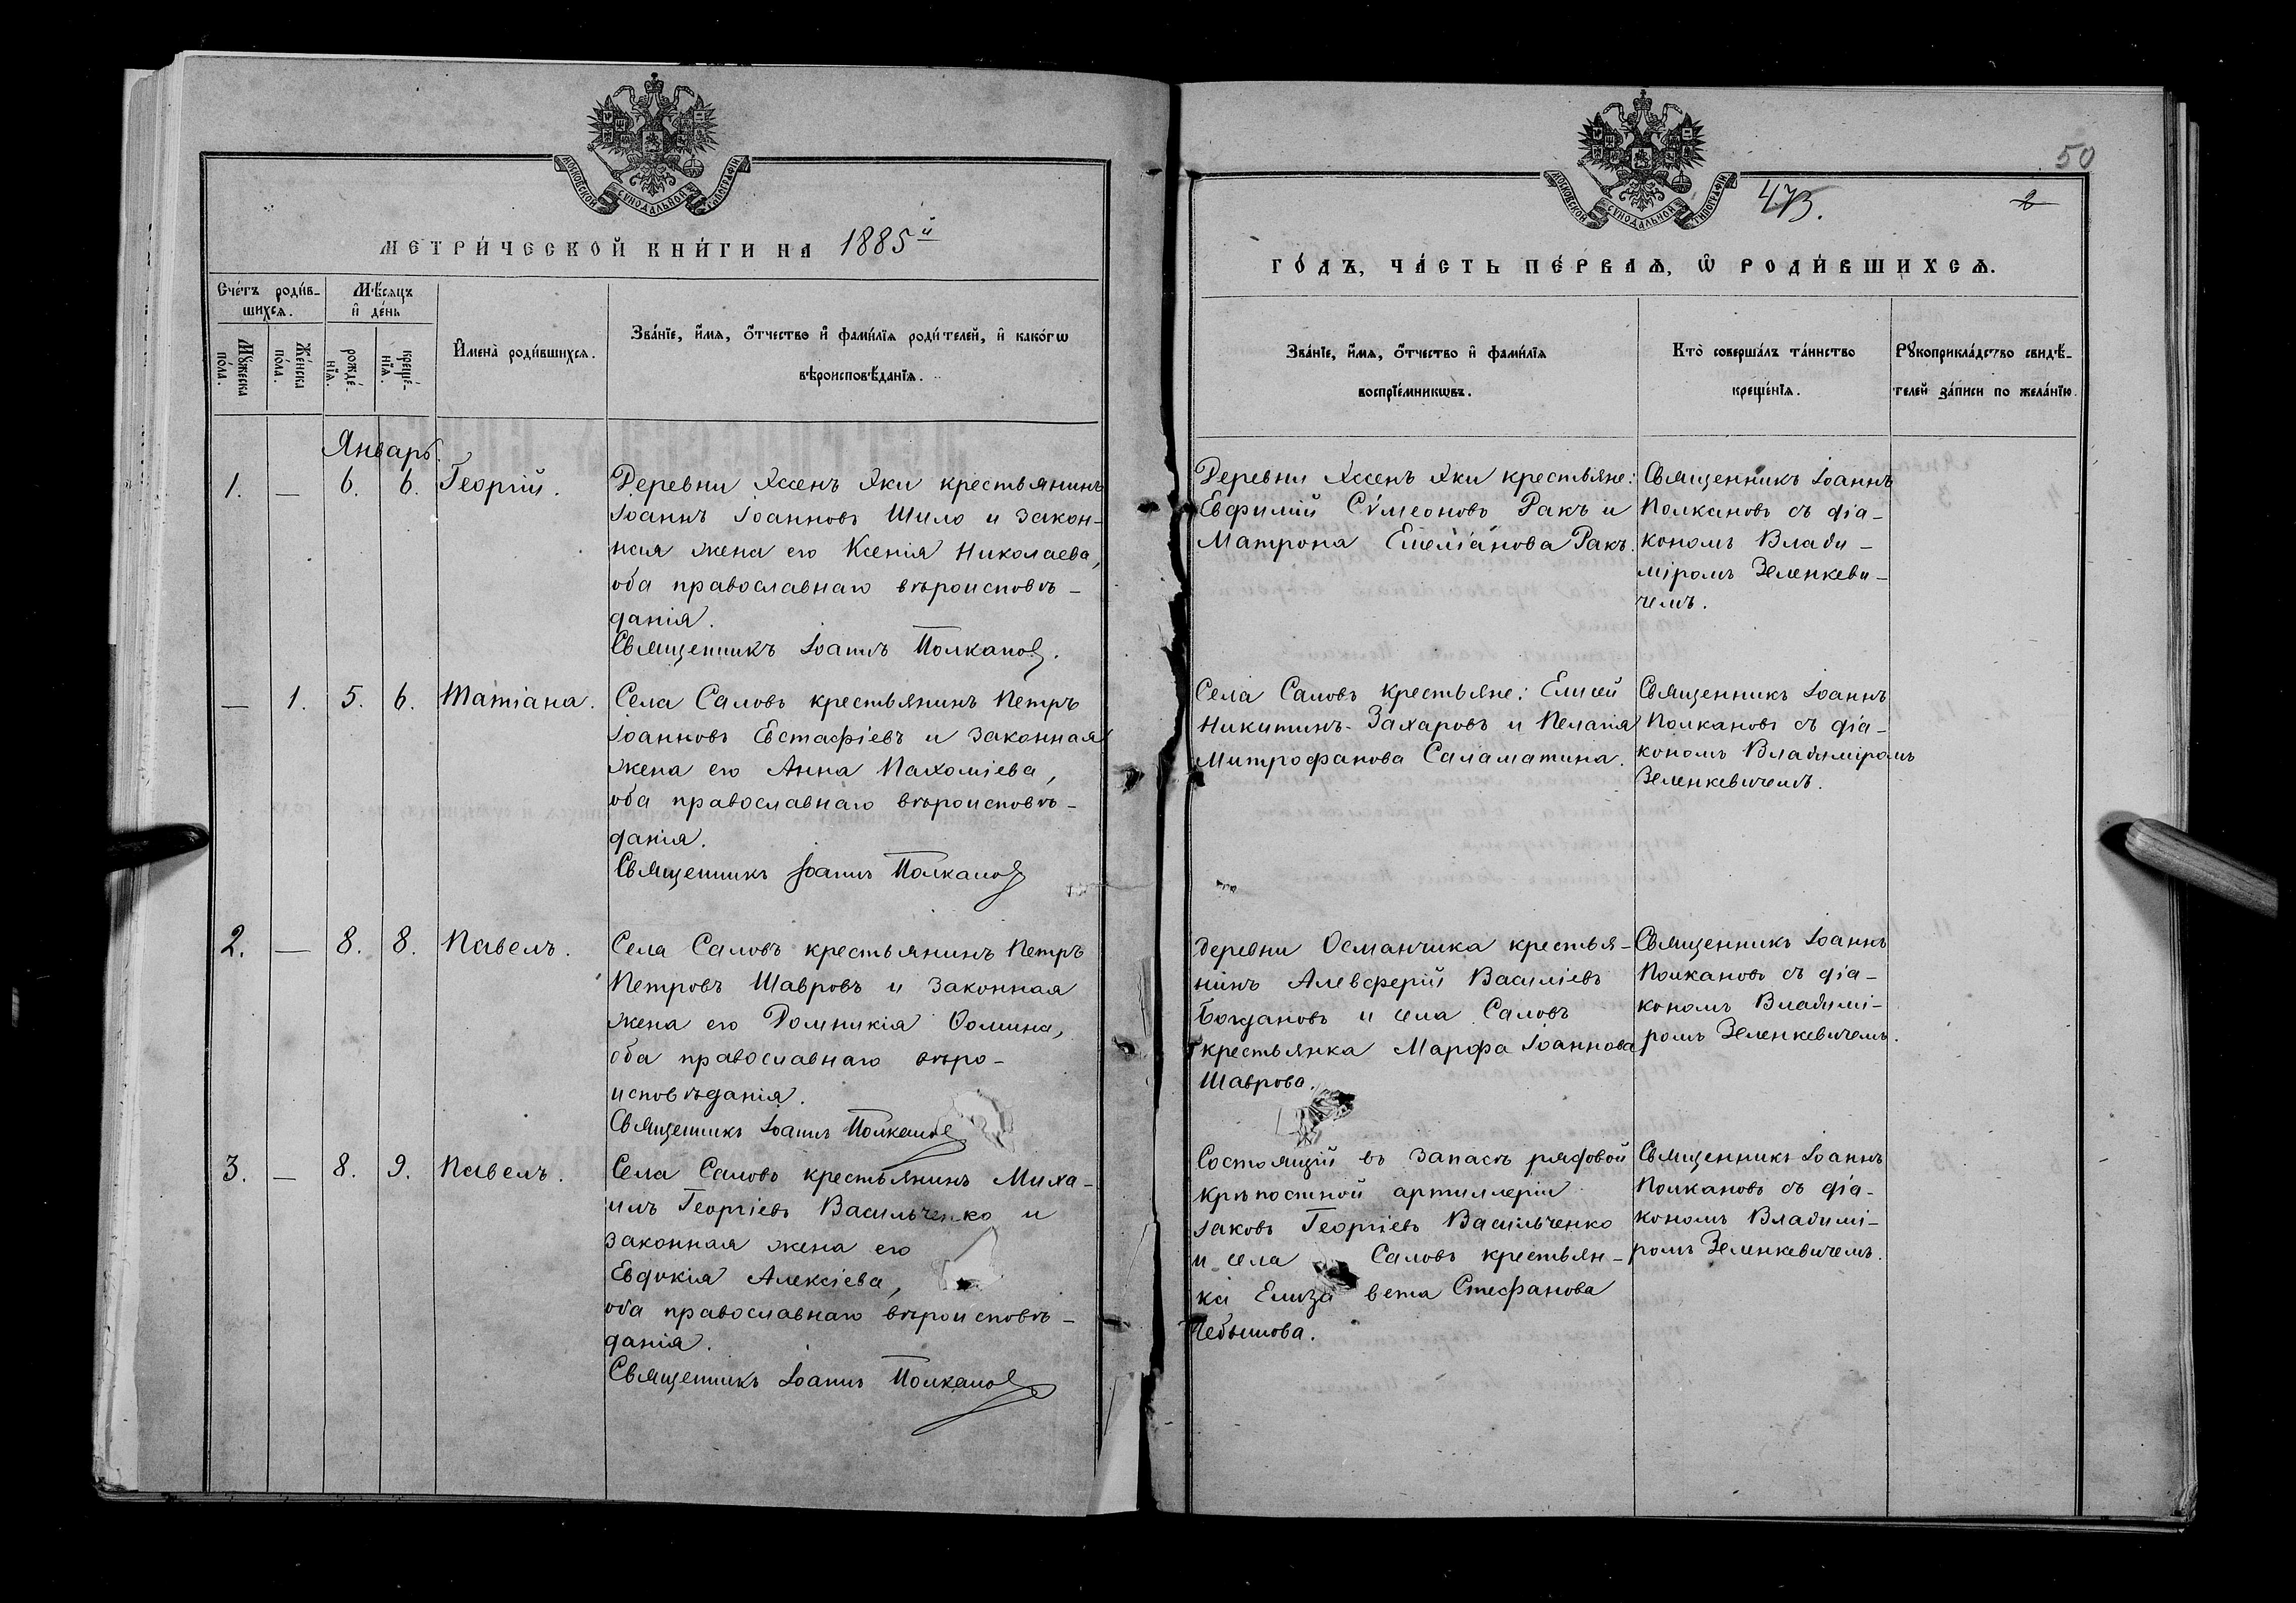 МОСКОВСКОЙ СѴНОДАЛЬНОЙ ТИПОГРАФІИ
МЕТРИ́ЧЕСКОЙ КНИ́ГИ НА 1885й
Сче́тъ роди́в-
шихсѧ.
Мѣ́сѧцъ
и҆ де́нь
Мꙋ́жеска
по́ла.
Же́нска
по́ла.
рожде́-
нїѧ.
креще́-
нїѧ.
И҆мена̀ роди́вшихсѧ.
Зва́нїе, и҆́мѧ, ѻ҆́тчество и҆ фами́лїѧ роди́телей, и҆ како́гѡ
вѣроисповѣ́данїѧ.
Январь.
1. — 6. 6. Георгій.
Деревни Яссенъ Яки крестьянинъ
Іоаннъ Іоанновъ Шило и закон-
ная жена его Ксенія Николаева,
оба православнаго вѣроисповѣ-
данія.
Священникъ Іоаннъ Полкановъ.
— 1. 5. 6. Татіана.
Села Саловъ крестьянинъ Петръ
Іоанновъ Евстафіевъ и законная
жена его Анна Пахоміева,
оба православнаго вѣроисповѣ-
данія.
Священникъ Іоаннъ Полкановъ
2. — 8. 8. Павелъ.
Села Саловъ крестьянинъ Петръ
Петровъ Шавровъ и законная
жена его Домникія Ѳомина,
оба православнаго вѣро-
исповѣданія.
Священникъ Іоаннъ Полкановъ
3. — 8. 9. Павелъ.
Села Саловъ крестьянинъ Миха-
илъ Георгіевъ Васильченко и
законная жена его
Евдокія Алексіева,
оба православнаго вѣроисповѣ-
данія.
Священникъ Іоаннъ Полкановъ
50
МОСКОВСКОЙ СѴНОДАЛЬНОЙ ТИПОГРАФІИ
2
ГО́ДЪ, ЧА́СТЬ ПЕ́РВАѦ, Ѽ РОДИ́ВШИХСѦ.
Зва́нїе, и҆́мѧ, ѻ҆́тчество и҆ фами́лїѧ
воспрїе́мникѡвъ.
Кто̀ соверша́лъ та́инство
креще́нїѧ.
Рꙋкоприкла́дство свидѣ́-
телей за́писи по жела́нїю.
Деревни Яссенъ Яки крестьяне:
Евфимій Сѵмеоновъ Ракъ и
Матрона Емеліанова Ракъ.
Священникъ Іоаннъ
Полкановъ съ діа-
кономъ Влади-
міромъ Зеленкеви-
чемъ.
Села Саловъ крестьяне: Елисей
Никитинъ Захаровъ и Пелагія
Митрофанова Саламатина.
Священникъ Іоаннъ
Полкановъ съ діа-
кономъ Владиміромъ
Зеленкевичемъ.
Деревни Османчика крестья-
нинъ Алевферій Василіевъ
Богдановъ и села Саловъ
крестьянка Марфа Іоаннова
Шаврова.
Священникъ Іоаннъ
Полкановъ съ діа-
кономъ Владимі-
ромъ Зеленкевичемъ.
Состоящій въ запасѣ рядовой
крѣпостной артиллеріи
Іаковъ Георгіевъ Васильченко
и села Саловъ крестьян-
ка Елизавета Стефанова
Чебышова.
Священникъ Іоаннъ
Полкановъ съ діа-
кономъ Владимі-
ромъ Зеленкевичемъ.